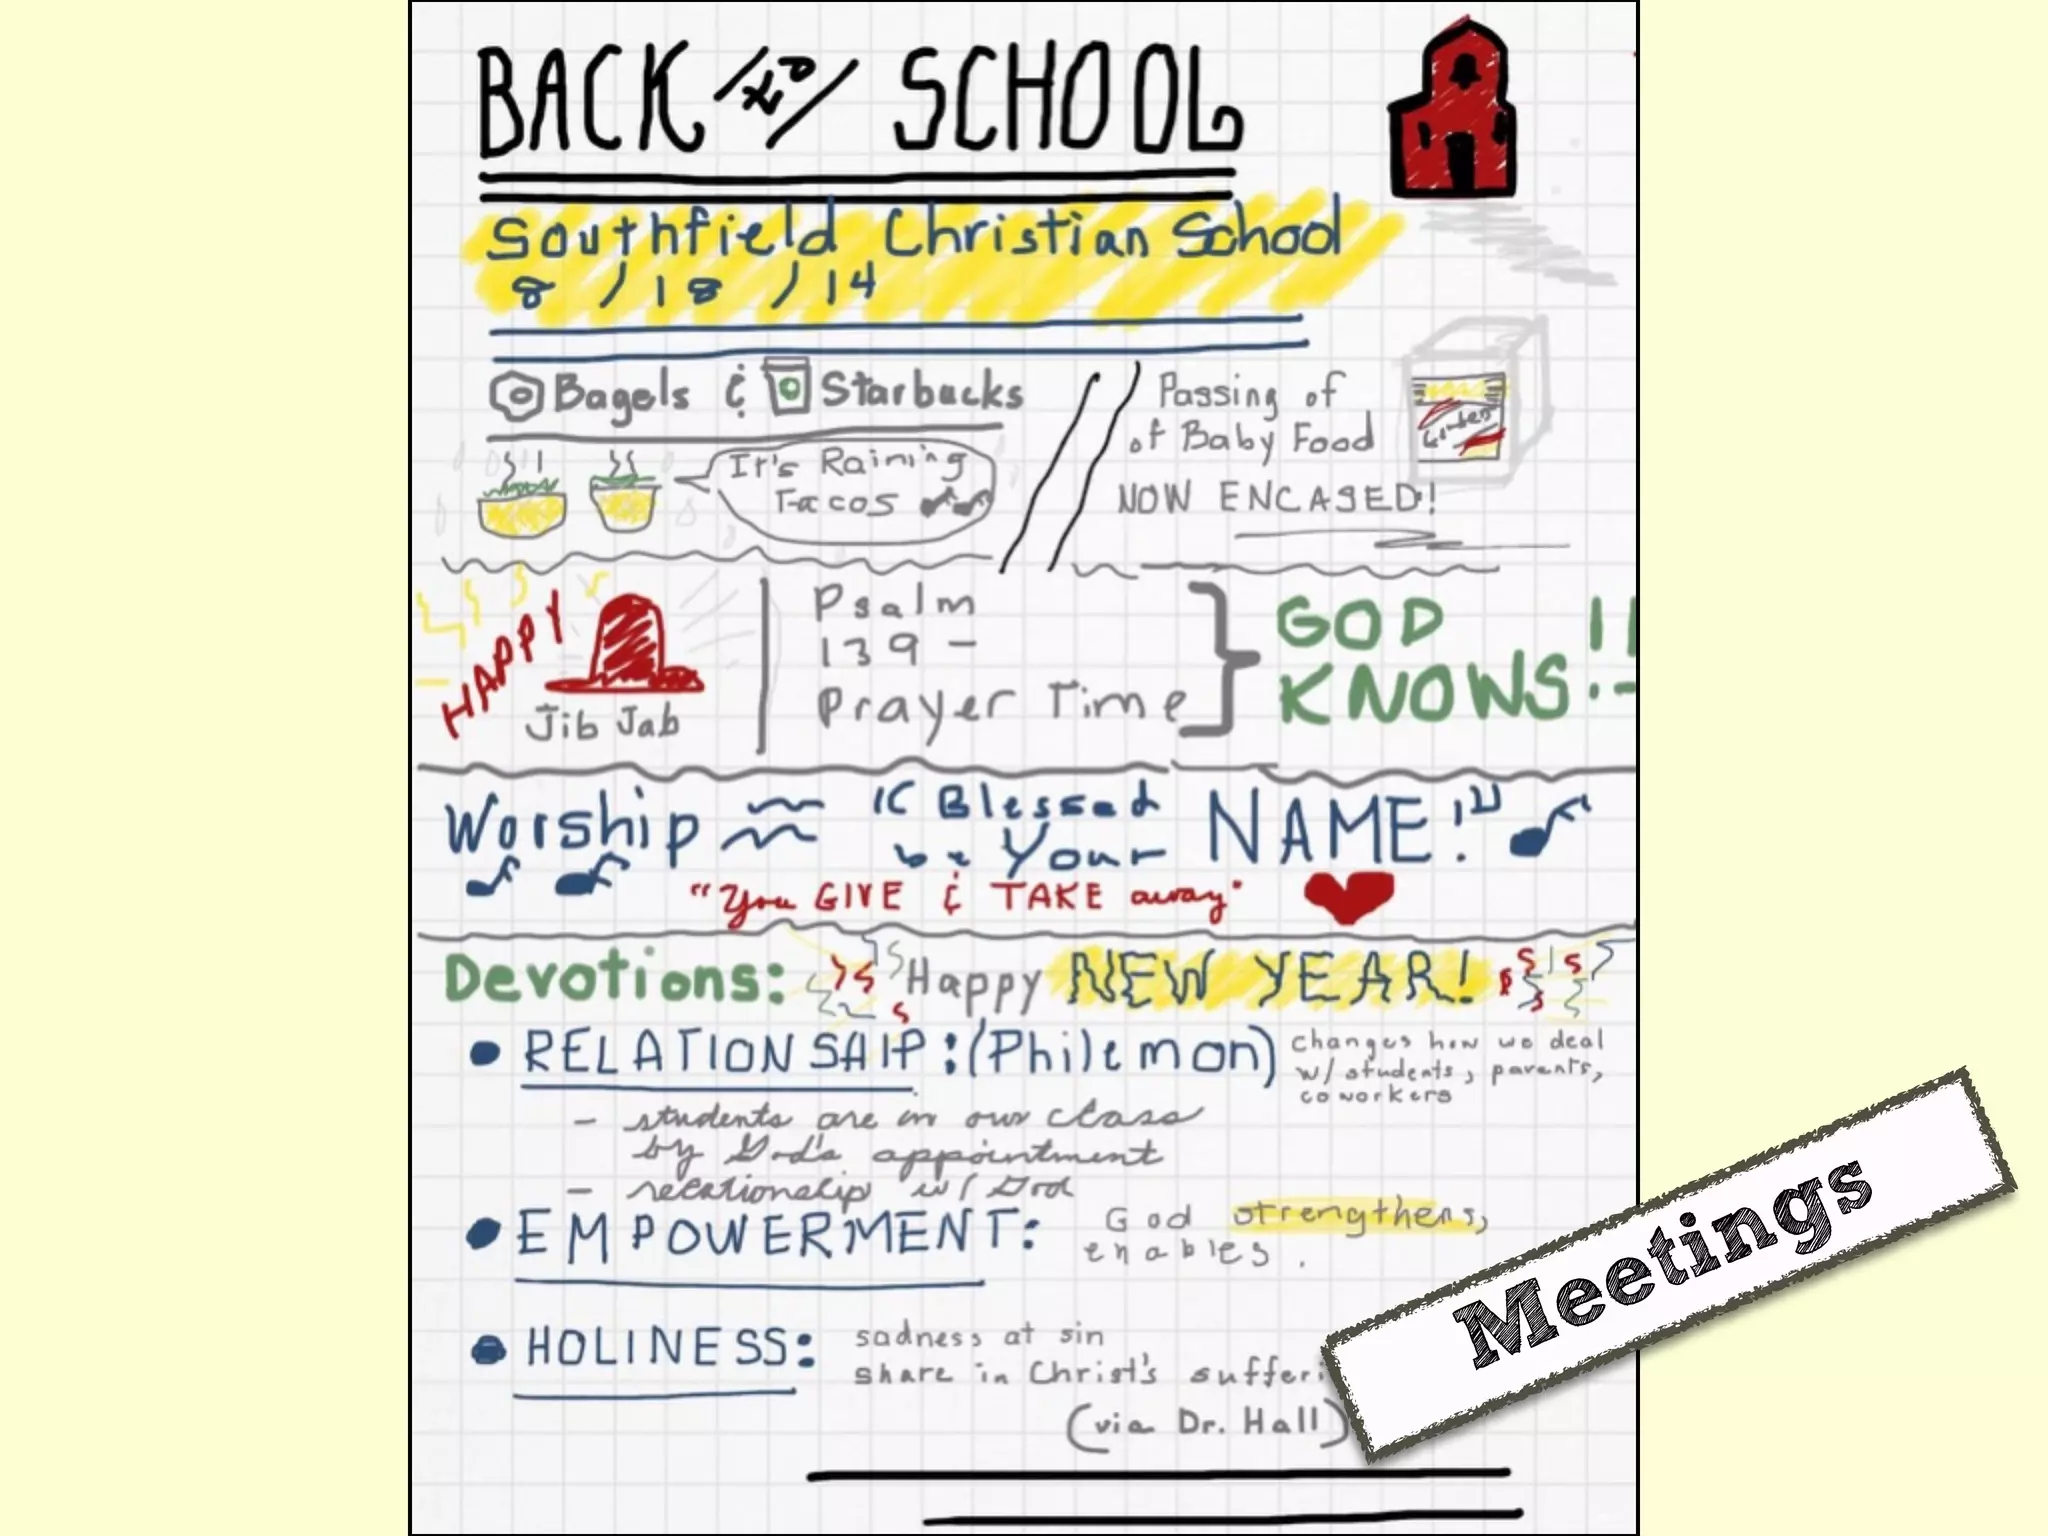 BACK to SCHOOL
Southfield Christian School
8/18/14
Bagels & Starbucks
It's Raining
Tacos
Passing of
of Baby Food
NOW ENCASED!
Gerber
HAPPY
Jib Jab
Psalm
139 -
Prayer Time
GOD
KNOWS!!
Worship "Blessed
be Your NAME!"
"You GIVE & TAKE away"
Devotions: Happy NEW YEAR!
• RELATIONSHIP: (Philemon)
changes how we deal
w/ students, parents,
coworkers
- students are in our class
by God's appointment
- relationship w/ God
• EMPOWERMENT: God strengthens,
enables.
• HOLINESS: sadness at sin
share in Christ's sufferi
(via Dr. Hall)
Meetings